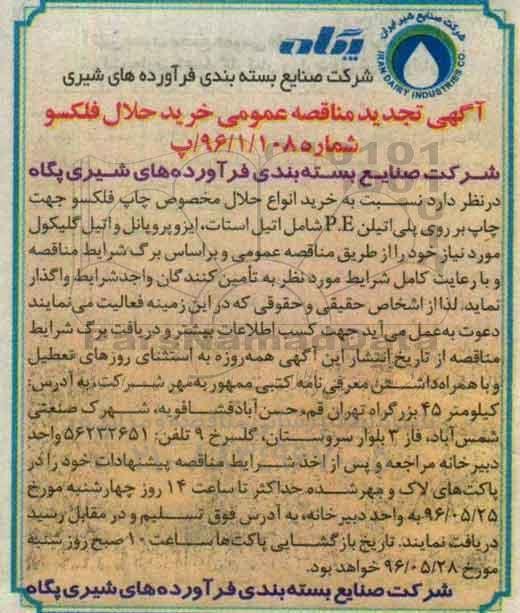 شرکت صنایع شیر ایران
IRAN DAIRY INDUSTRIES CO.
پگاه
شرکت صنایع بسته بندی فرآورده های شیری
آگهی تجدید مناقصه عمومی خرید حلال فلکسو
شماره ۹۶/۱/۱۰۸/پ
شرکت صنایع بسته‌بندی فرآورده‌های شیری پگاه
درنظر دارد نسبت به خرید انواع حلال مخصوص چاپ فلکسو جهت
چاپ بر روی پلی اتیلن P.E شامل اتیل استات، ایزوپروپانل و اتیل گلیکول
مورد نیاز خود را از طریق مناقصه عمومی و براساس برگ شرایط مناقصه
و با رعایت کامل شرایط مورد نظر به تأمین کنندگان واجدشرایط واگذار
نماید. لذا از اشخاص حقیقی و حقوقی که در این زمینه فعالیت می‌نمایند
دعوت به‌عمل می‌آید جهت کسب اطلاعات بیشتر و دریافت برگ شرایط
مناقصه از تاریخ انتشار این آگهی همه‌روزه به استثنای روزهای تعطیل
و با همراه‌داشتن معرفی‌نامه کتبی ممهور به‌مهر شرکت، به آدرس:
کیلومتر ۴۵ بزرگراه تهران قم، حسن آبادفشافویه، شهرک صنعتی
شمس‌آباد، فاز ۳ بلوار سروستان، گلسرخ ۹ تلفن: ۵۶۲۳۲۶۵۱ واحد
دبیرخانه مراجعه و پس از اخذ شرایط مناقصه پیشنهادات خود را در
پاکت‌های لاک و مهرشده حداکثر تا ساعت ۱۴ روز چهارشنبه مورخ
۹۶/۰۵/۲۵ به واحد دبیرخانه، به آدرس فوق تسلیم و در مقابل رسید
دریافت نمایند. تاریخ بازگشایی پاکت‌ها ساعت ۱۰ صبح روز شنبه
مورخ ۹۶/۰۵/۲۸ خواهد بود.
شرکت صنایع بسته‌بندی فرآورده‌های شیری پگاه
ParsNamadData